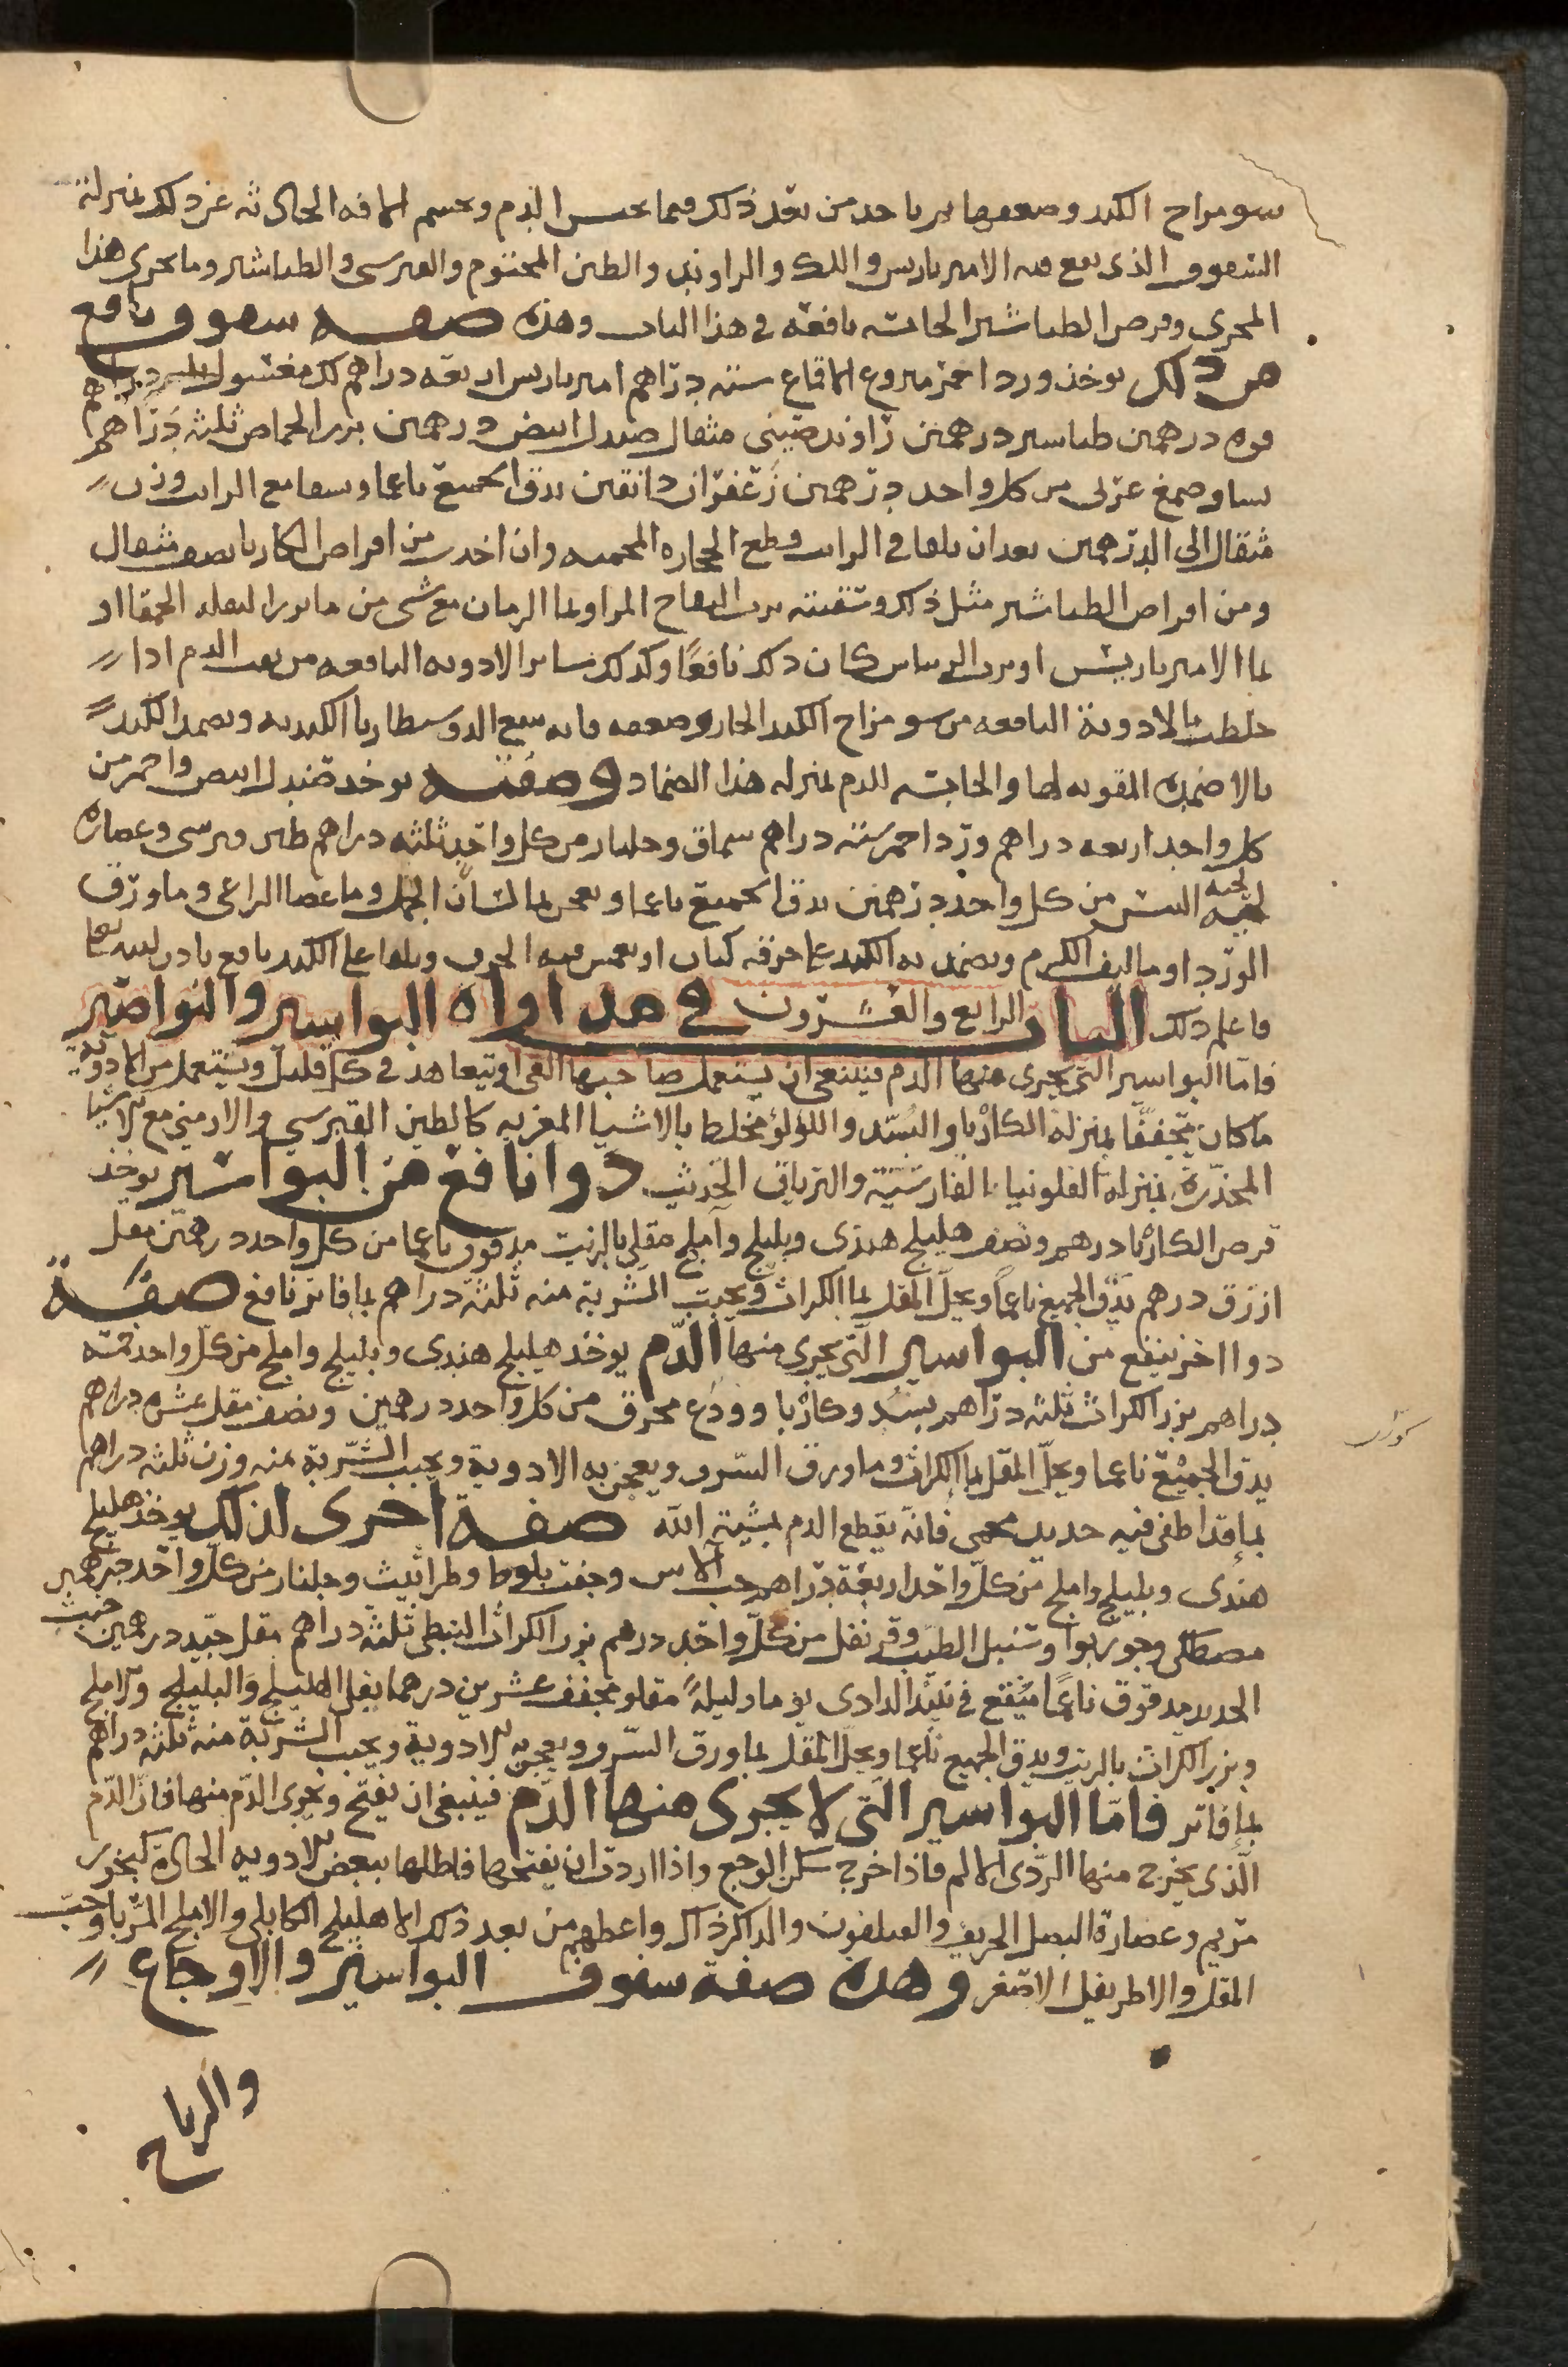 سو مزاج الكبد وضعفها مر باحد من بعد ذلك فيما يحبس الدم ويحسم الافه الحادثه عن ذلك بمنزلة
السفوف الذى يقع فيه الامبرباريس واللك والراوند والطين المختوم والقبرسى والطباشير وما يجرى هذا
المجرى وقرص الطباشير الحابسه نافعة فى هذا الباب وهذه صفه سفوف نافع
من ذلك يوخذ ورد احمر منزوع الاقماع ستة دراهم امبرباريس اربعه دراهم لك مغسول
فوه درهمين طباشير درهمين راوند صينى مثقال صندل ابيض درهمين بزر الحماض ثلثه دراهم
نشا وصمغ عربى من كل واحد درهمين زعفران دانقين يدق الجميع ناعما وسفا مع الرايب وزن
مثقال الى الدرهمين بعد ان يلقا فى الرايب قطع الحجاره المحميه وان اخذت من اقراص الكاربا نصف مثقال
ومن اقراص الطباشير مثل ذلك وسقيته برب التفاح المز او بما الرمان مع شى من ما بزر البقله الحمقا او
بما الامبرباريس او برب الريباس كان ذلك نافعًا وكذلك ساير الادويه النافعه من نفث الدم اذا
خلطت بالادوية النافعه من سو مزاج الكبد الحار وضعفه فانه ينفع الدوسنطاريا الكبديه ويضمد الكبد
بالاضمده المقويه لها والحابسه للدم بمنزله هذا الضماد وصفته يوخذ صندل ابيض واحمر من
كل واحد اربعه دراهم ورد احمر ستة دراهم سماق وجلنار من كل واحد ثلثه دراهم طين قبرسى وعصاره
لحية التيس من كل واحد درهمين يدق الجميع ناعما ويعجن بما لسان الحمل وما عصا الراعى وما ورق
الورد او ما ليف الكرم ويضمد به الكبد على خرقه كتان او يغمس فيه الخرق ويلقا على الكبد نافع باذن الله تعا
فاعلم ذلك الباب الرابع والعشرون فى مداواه البواسير والنواصير
فاما البواسير التى يجرى منها الدم فينبغى ان يستعمل صاحبها القى ويتعاهد فى كل قليل ويستعمل من الادوية
ما كان مجففًا بمنزلة الكاربا والبسد واللؤلؤ مخلط بالاشيا المغريه كالطين القبرسي والارمنى مع الاشيا
المخدرة بمنزلة الفلونيا الفارسية والترياق الحديث دوا نافع من البواسير يوخذ
قرص الكاربا درهم ونصف هليلج هندى وبليلج وآملج مقلى بالزيت مدقوق ناعما من كل واحد درهمين مقل
ازرق درهم يدق الجميع ناعمًا ويحل المقل بما الكراث ويحبب الشربة منه ثلثة دراهم بما فاتر نافع صفة
دوا اخر ينفع من البواسير التى يجرى منها الدم يوخذ هليلج هندى وبليلج واملج من كل واحد خمسه
دراهم بزر الكراث ثلثه دراهم بسد وكاربا وودع محرق من كل واحد درهمين ونصف مقل عشره دراهم
يدق الجميع ناعما ويحل المقل بما الكراث وما ورق السرو ويعجن به الادوية ويحبب الشربة منه وزن ثلثه دراهم
بما قد اطفى فيه حديد محمى فانه يقطع الدم بمشية الله صفة اخرى لذلك يوخذ هليلج
هندى وبليلج واملج من كل واحد اربعة دراهم حب الاس وجفت بلوط وطراثيث وجلنار من كل واحد درهمين
مصطكى وجوز بوا وسنبل الطيب وقرنفل من كل واحد درهم بزر الكراث النبطى ثلثه دراهم مقل جيد درهمين خبث
الحديد مدقوق ناعمًا منقع فى نبيذ الدادى يوما وليلةً مقلو مجفف عشرين درهما يقلى الهليلج والبليلج والاملج
وبزر الكراث بالزيت ويدق الجميع ناعما ويحل المقل بما ورق السرو ويعجن به الادوية ويحبب الشربة منه ثلثة دراهم
بما فاتر فاما البواسير التى لا يجرى منها الدم فينبغى ان يفتح ويجرى الدم منها فان الدم
الذى يخرج منها الردى الالم فاذا خرج سكن الوجع واذا اردت ان يفتحها فاطلها ببعض الادويه الحادة كبخور
مريم وعصارة البصل الحريف واعطهم من بعد ذلك الاهليلج الكابلى والاملج المربا وحب
المقل والاطريفل الاصغر وهذه صفة سفوف البواسير والاوجاع
والرياح